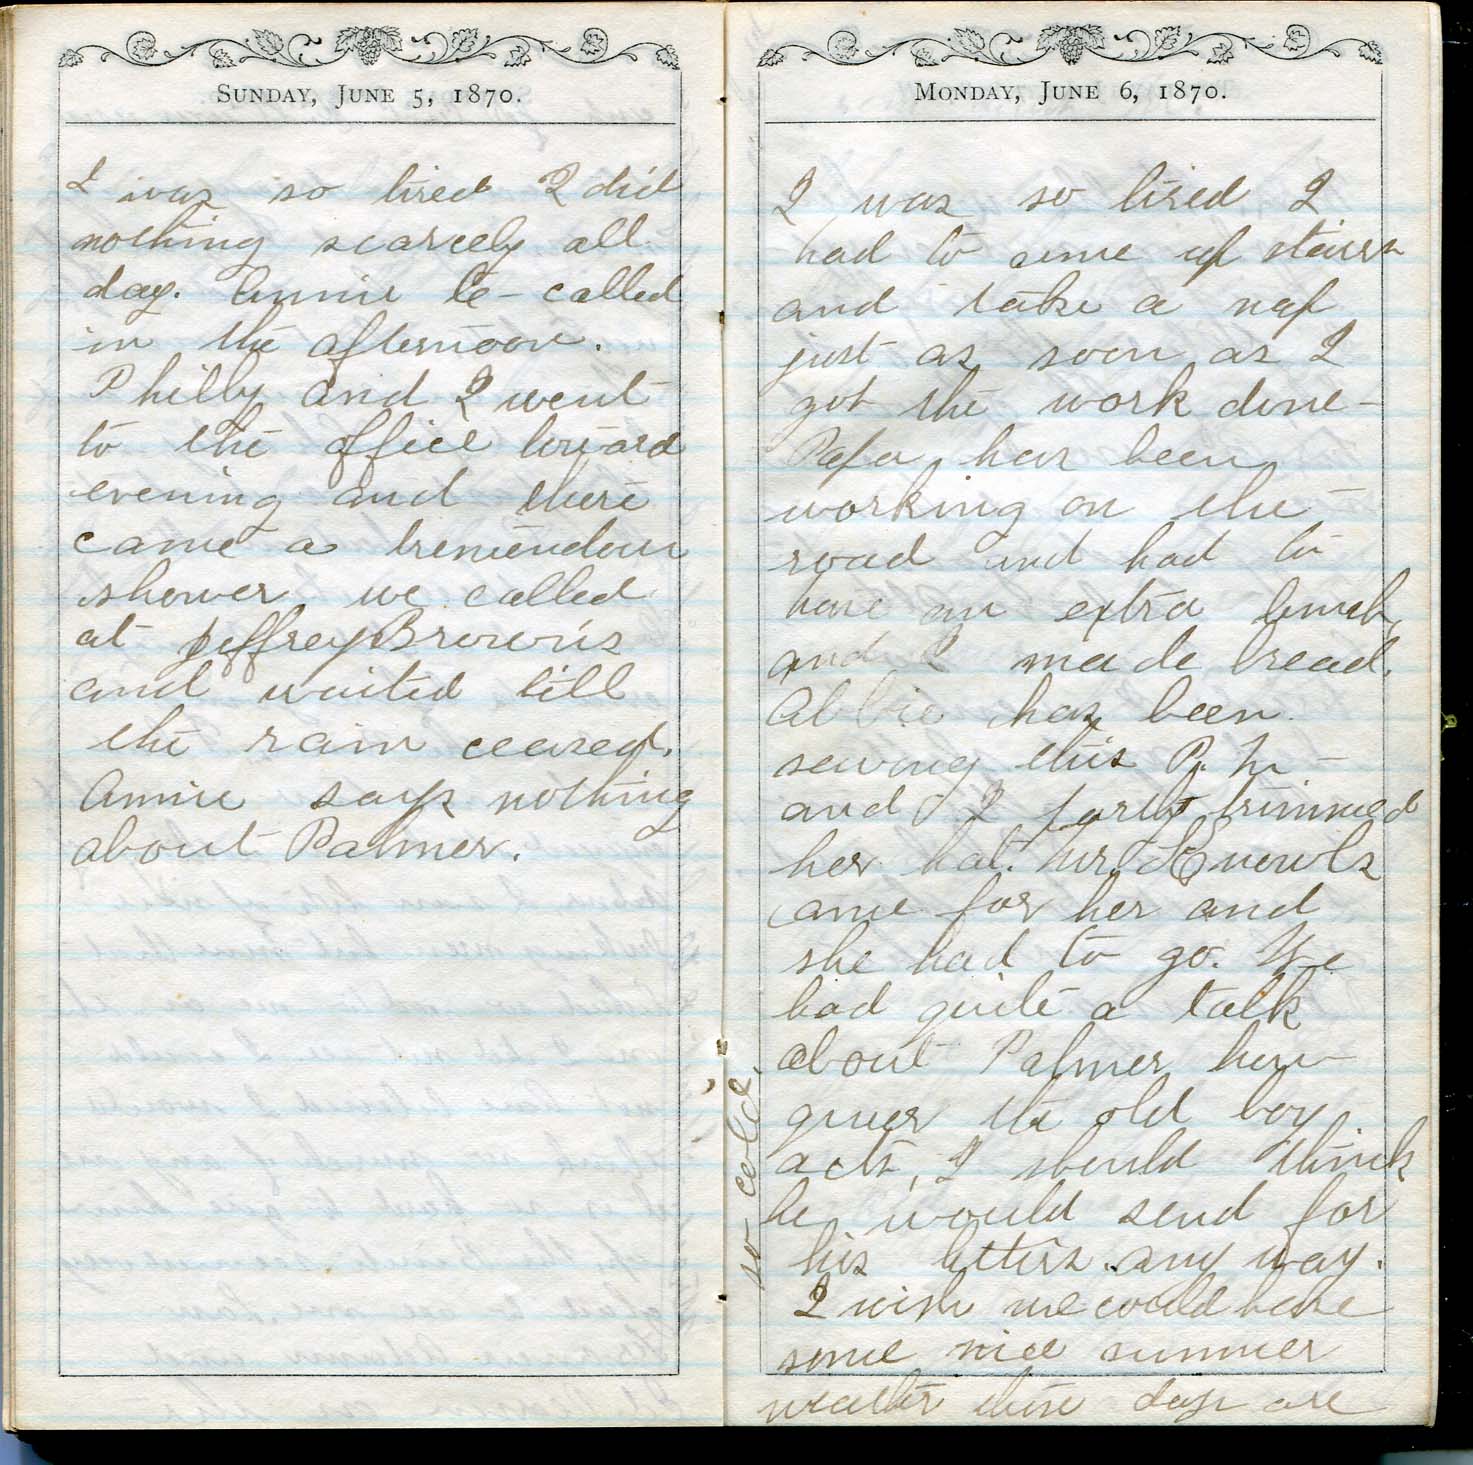 SUNDAY, JUNE 5, 1870.
I was so tired I did
nothing scarcely all
day. Annie Le- called
in the afternoon.
Philly and I went
to the office toward
evening and there
came a tremendous
shower we called
at Jeffrey Brown's
and waited till
the rain ceased.
Annie says nothing
about Palmer.
MONDAY, JUNE 6, 1870.
I was so tired I
had to come up stairs
and take a nap
just as soon as I
got the work done-
Papa has been
working on the
road and had to
have an extra lunch,
and I made bread.
Abbie has been
sewing this P. M. -
and I partly trimmed
her hat. Mr. Knowls
came for her and
she had to go. We
had quite a talk
about Palmer how
queer the old boy
acts, I should think
he would send for
his letters any way.
I wish we could have
some nice summer
weather these days are
so cold.